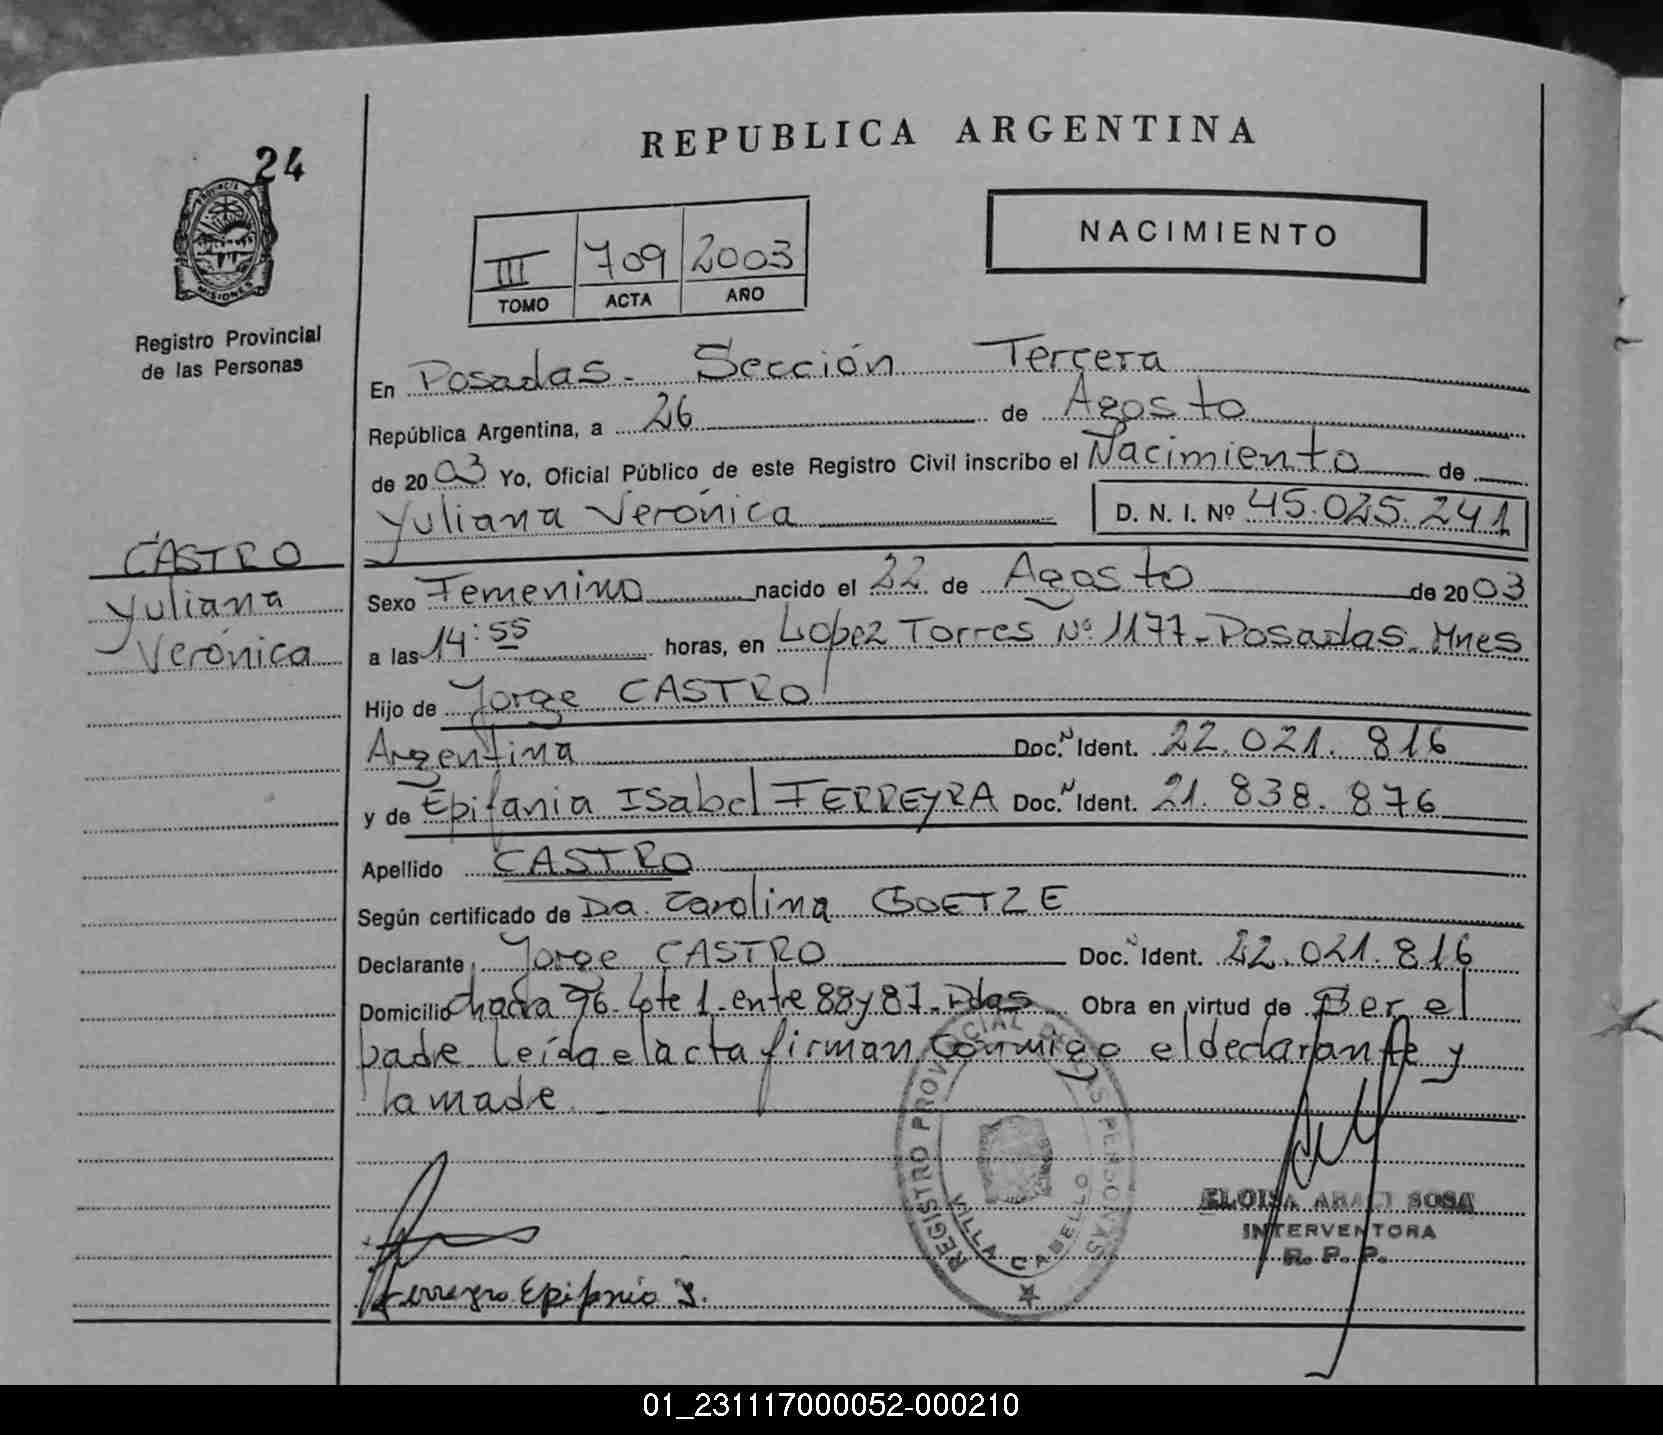 REPUBLICA ARGENTINA
24
PROVINCIA DE
MISIONES
Registro Provincial
de las Personas
III 709 2003
TOMO ACTA AÑO
NACIMIENTO
En Posadas. Sección Tercera
República Argentina, a 26 de Agosto
de 2003 Yo, Oficial Público de este Registro Civil inscribo el Nacimiento de
Yuliana Verónica D. N. I. Nº 45.025.241
CASTRO
Yuliana
Verónica
Sexo Femenino nacido el 22 de Agosto de 2003
a las 14:55 horas, en Lopez Torres Nº 1177-Posadas-Mnes
Hijo de Jorge CASTRO
Argentina Doc. N Ident. 22.021.816
y de Epifania Isabel FERREYRA Doc. N Ident. 21.838.876
Apellido CASTRO
Según certificado de Da. Carolina GOETZE
Declarante Jorge CASTRO Doc. N Ident. 22.021.816
Domicilio Chacra 96. Lote 1. entre 88 y 87. Pdas Obra en virtud de Ser el
padre leída el acta firman conmigo el declarante y
la madre
REGISTRO PROVINCIAL DE LAS PERSONAS
VILLA CABELLO
ELOISA ARACI SOSA
INTERVENTORA
R. P. P.
Ferreyra Epifania I.
01_231117000052-000210